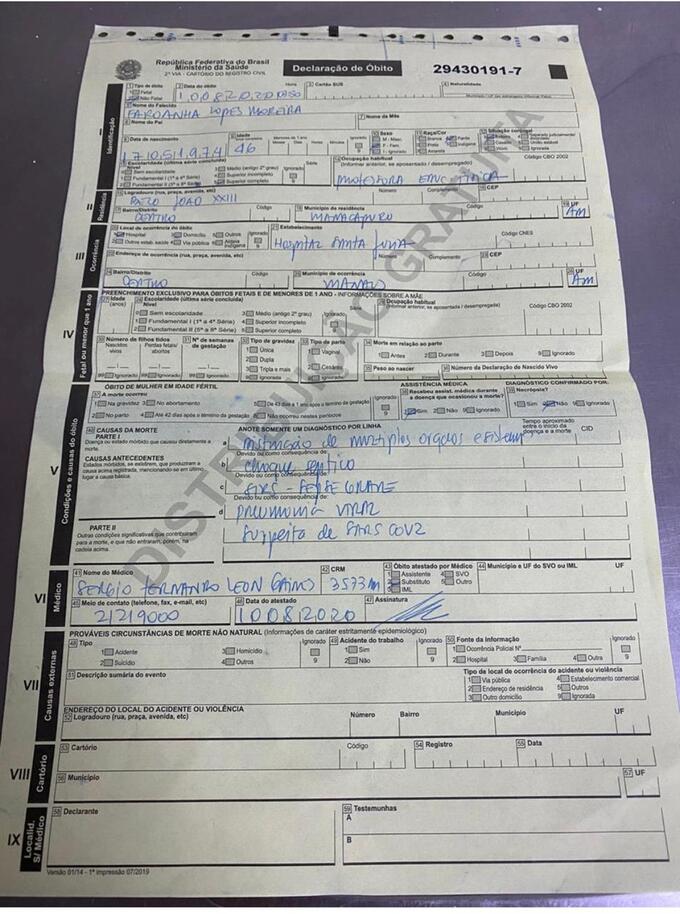 República Federativa do Brasil
Ministério da Saúde
2ª VIA - CARTÓRIO DO REGISTRO CIVIL
Declaração de Óbito
29430191-7
I Identificação
1 Tipo de óbito
1 Fetal
2 Não Fetal
2 Data do óbito
Hora
10082020
3 Cartão SUS
4 Naturalidade
5 Nome do Falecido
LOPES MOREIRA
6 Nome do Pai
7 Nome da Mãe
8 Data de nascimento
17051974
9 Idade
46
Menores de 1 ano
Meses Dias Horas Minutos Ignorado
10 Sexo
M - Masc.
F - Fem.
I - Ignorado
11 Raça/Cor
Branca
Preta
Amarela
Parda
Indígena
12 Situação conjugal
13 Escolaridade (última série concluída)
Nível
0 Sem escolaridade
1 Fundamental I (1ª a 4ª Série)
2 Fundamental II (5ª a 8ª Série)
3 Médio (antigo 2º grau)
4 Superior incompleto
5 Superior completo
Ignorado
Série
14 Ocupação habitual
(Informar anterior, se aposentado / desempregado)
Código CBO 2002
II Residência
15 Logradouro (rua, praça, avenida, etc)
JOAO XXIII
Número
Complemento
16 CEP
17 Bairro/Distrito
CENTRO
Código
18 Município de residência
Código
19 UF
AM
III Ocorrência
20 Local de ocorrência do óbito
1 Hospital
2 Outros estab. saúde
3 Domicílio
4 Via pública
5 Outros
6 Aldeia indígena
Ignorado
9
21 Estabelecimento
Código CNES
22 Endereço de ocorrência (rua, praça, avenida, etc)
Número
Complemento
23 CEP
24 Bairro/Distrito
CENTRO
Código
25 Município de ocorrência
MANAUS
Código
26 UF
AM
IV Fetal ou menor que 1 ano
PREENCHIMENTO EXCLUSIVO PARA ÓBITOS FETAIS E DE MENORES DE 1 ANO - INFORMAÇÕES SOBRE A MÃE
27 Idade (anos)
28 Escolaridade (última série concluída)
Nível
0 Sem escolaridade
1 Fundamental I (1ª a 4ª Série)
2 Fundamental II (5ª a 8ª Série)
3 Médio (antigo 2º grau)
4 Superior incompleto
5 Superior completo
Ignorado
9
Série
29 Ocupação habitual
(Informar anterior, se aposentada / desempregada)
Código CBO 2002
30 Número de filhos tidos
Nascidos vivos
Perdas fetais/ abortos
99 Ignorado
99 Ignorado
31 Nº de semanas de gestação
99 Ignorado
32 Tipo de gravidez
1 Única
2 Dupla
3 Tripla e mais
9 Ignorada
33 Tipo de parto
1 Vaginal
2 Cesáreo
9 Ignorado
34 Morte em relação ao parto
1 Antes
2 Durante
3 Depois
9 Ignorado
35 Peso ao nascer
36 Número da Declaração de Nascido Vivo
V Condições e causas do óbito
ÓBITO DE MULHER EM IDADE FÉRTIL
37 A morte ocorreu
1 Na gravidez
2 No parto
3 No abortamento
4 Até 42 dias após o término da gestação
5 De 43 dias a 1 ano após o término da gestação
8 Não ocorreu nestes períodos
Ignorado
9
ASSISTÊNCIA MÉDICA
38 Recebeu assist. médica durante a doença que ocasionou a morte?
1 Sim
2 Não
9 Ignorado
DIAGNÓSTICO CONFIRMADO POR:
39 Necrópsia?
1 Sim
2 Não
9 Ignorado
40 CAUSAS DA MORTE
PARTE I
Doença ou estado mórbido que causou diretamente a morte.
CAUSAS ANTECEDENTES
Estados mórbidos, se existirem, que produziram a causa acima registrada, mencionando-se em último lugar a causa básica.
ANOTE SOMENTE UM DIAGNÓSTICO POR LINHA
Tempo aproximado entre o início da doença e a morte
CID
a de multiplos orgãos
Devido ou como consequência de:
b choque septico
Devido ou como consequência de:
c SIRS - SEPSE GRAVE
Devido ou como consequência de:
d pneumonia VIRAL
PARTE II
Outras condições significativas que contribuíram para a morte, e que não entraram, porém, na cadeia acima.
Suspeita de SARS COV2
VI Médico
41 Nome do Médico
SERGIO FERNANDO LEON
42 CRM
43 Óbito atestado por Médico
1 Assistente
2 Substituto
3 IML
4 SVO
5 Outro
44 Município e UF do SVO ou IML
UF
45 Meio de contato (telefone, fax, e-mail, etc)
21219000
46 Data do atestado
10082020
47 Assinatura
VII Causas externas
PROVÁVEIS CIRCUNSTÂNCIAS DE MORTE NÃO NATURAL (Informações de caráter estritamente epidemiológico)
48 Tipo
1 Acidente
2 Suicídio
3 Homicídio
4 Outros
Ignorado
9
49 Acidente do trabalho
1 Sim
2 Não
Ignorado
9
50 Fonte da Informação
1 Ocorrência Policial Nº
2 Hospital
3 Família
4 Outra
Ignorado
9
51 Descrição sumária do evento
Tipo de local de ocorrência do acidente ou violência
1 Via pública
2 Endereço de residência
3 Outro domicílio
4 Estabelecimento comercial
5 Outros
9 Ignorada
ENDEREÇO DO LOCAL DO ACIDENTE OU VIOLÊNCIA
52 Logradouro (rua, praça, avenida, etc)
Número
Bairro
Município
UF
VIII Cartório
53 Cartório
Código
54 Registro
55 Data
56 Município
57 UF
IX Localid. S/ Médico
58 Declarante
59 Testemunhas
A
B
Versão 01/14 - 1ª impressão 07/2019
DISTRIBUIÇÃO GRATUITA